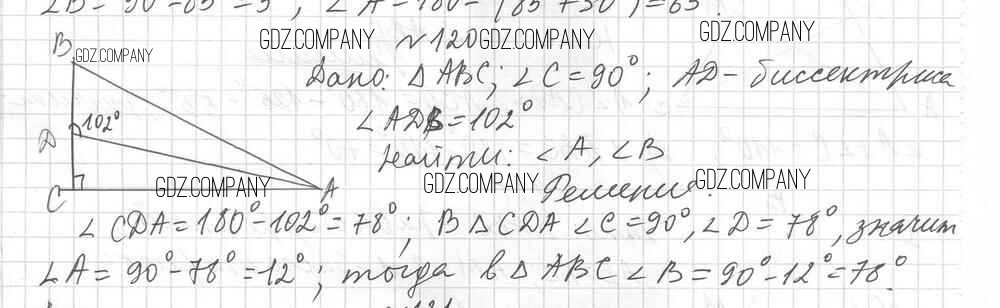 ∠B = 90° - 85° = 5°; ∠A = 180° - (85° + 30°) = 65°
GDZ.COMPANY №120 GDZ.COMPANY GDZ.COMPANY
B GDZ.COMPANY
Дано: △ABC; ∠C = 90°; AD - биссектриса
102° ∠ADB = 102°
D
Найти: ∠A, ∠B
C GDZ.COMPANY A GDZ.COMPANY Решение: GDZ.COMPANY
∠CDA = 180° - 102° = 78°; В △CDA ∠C = 90°, ∠D = 78°, значит
∠A = 90° - 78° = 12°; тогда в △ABC ∠B = 90° - 12° = 78°.